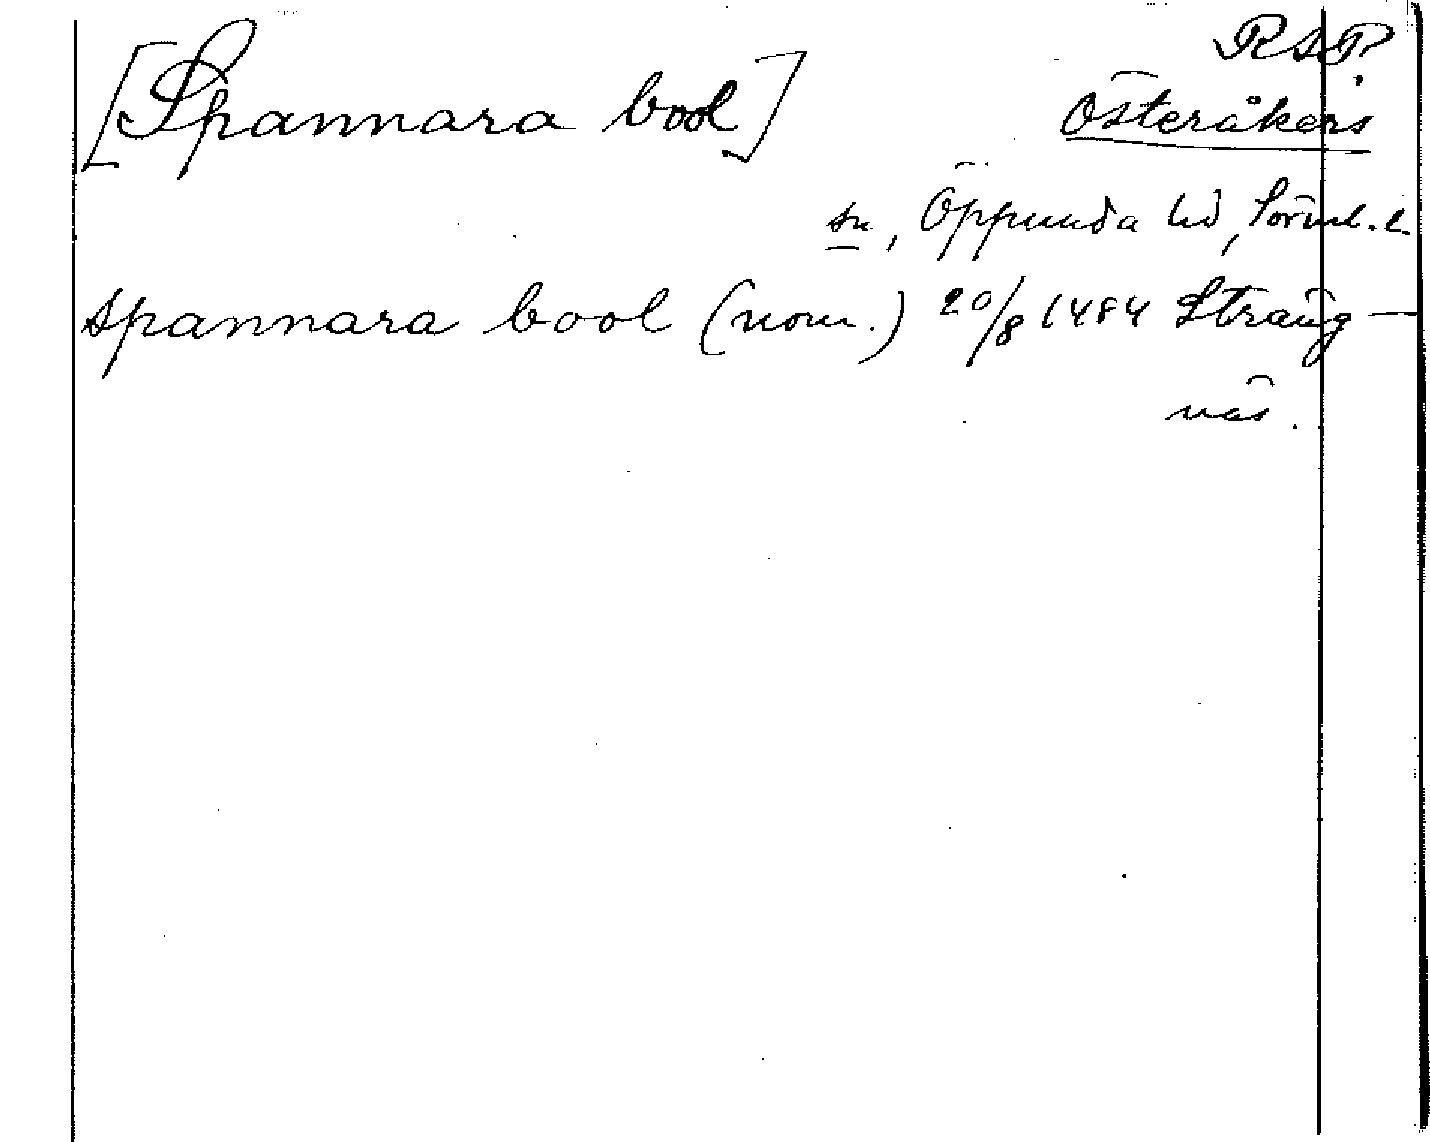 RAP.
[Spannara bool]
Österåkers
sn, Oppunda hd, Sörml. l.
spannara bool (nom.) 20/8 1484 Sträng-
näs.